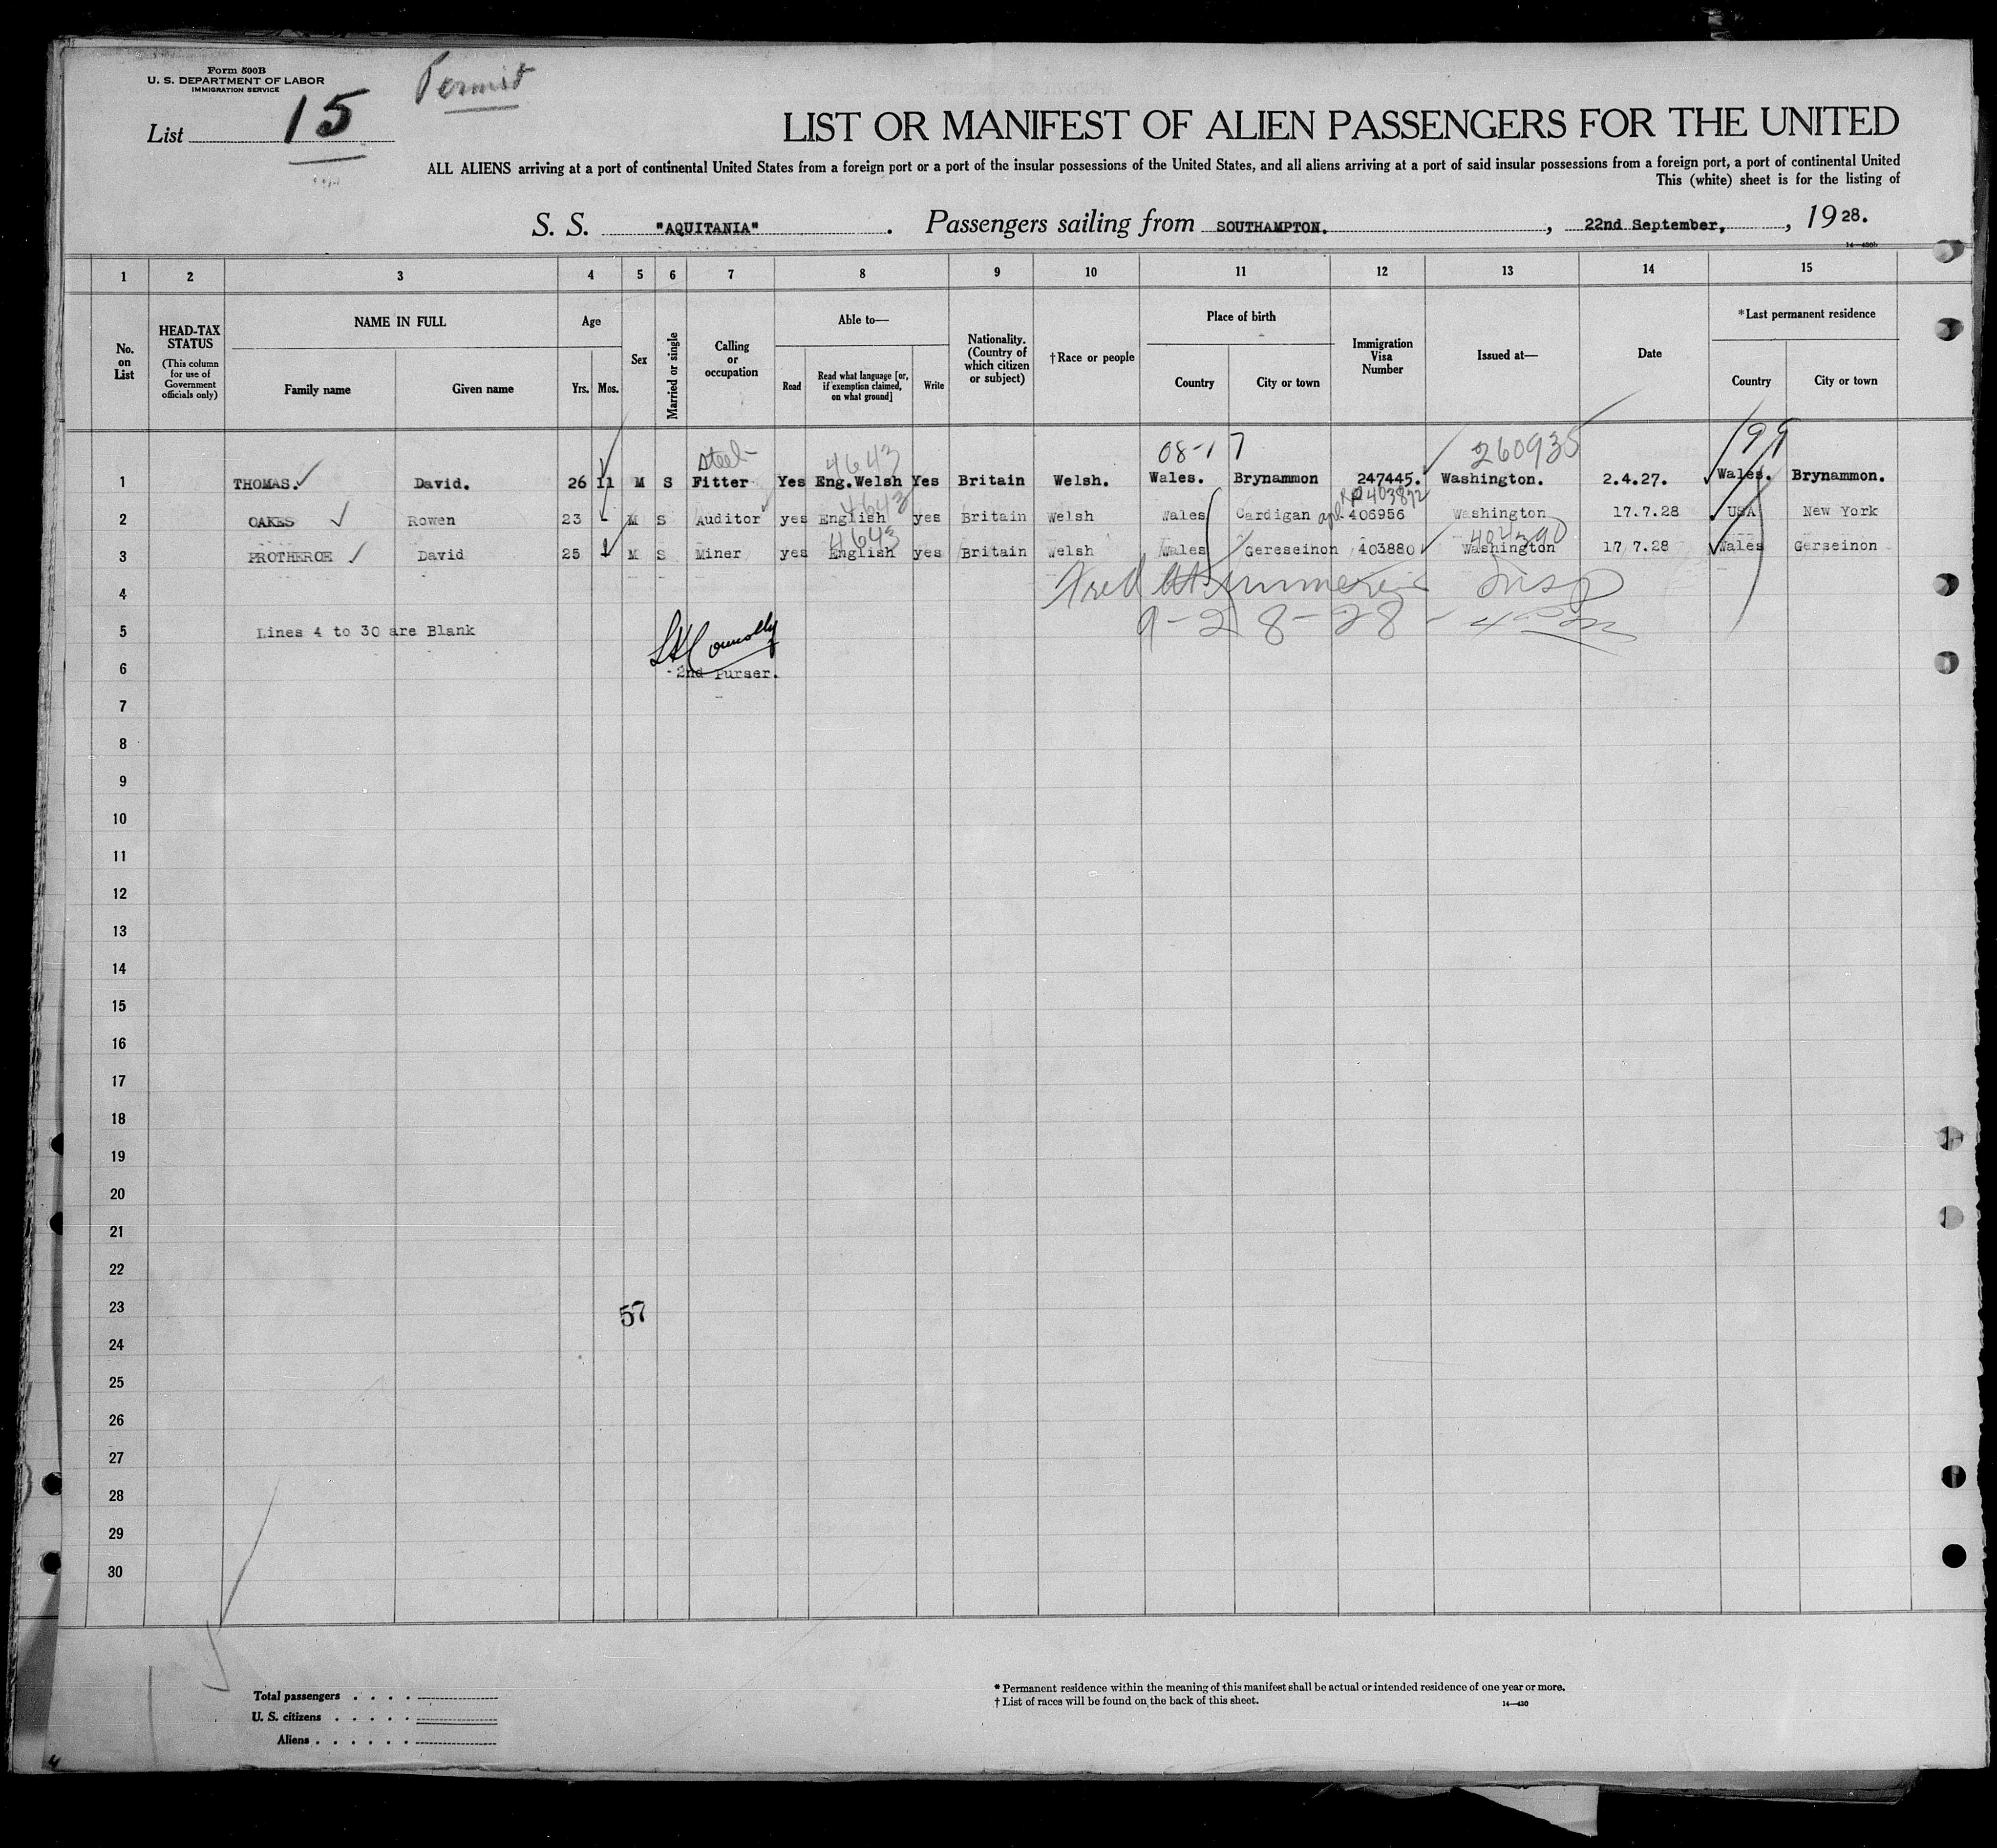 Form 500B
U. S. DEPARTMENT OF LABOR
IMMIGRATION SERVICE
Permit
List 15
LIST OR MANIFEST OF ALIEN PASSENGERS FOR THE UNITED
ALL ALIENS arriving at a port of continental United States from a foreign port or a port of the insular possessions of the United States, and all aliens arriving at a port of said insular possessions from a foreign port, a port of continental United
This (white) sheet is for the listing of
S. S. "AQUITANIA" . Passengers sailing from SOUTHAMPTON. , 22nd September, , 1928.
1 2 3 4 5 6 7 8 9 10 11 12 13 14 15
No. on List
HEAD-TAX STATUS (This column for use of Government officials only)
NAME IN FULL
Family name Given name
Age
Yrs. Mos.
Sex
Married or single
Calling or occupation
Able to—
Read Read what language [or, if exemption claimed, on what ground] Write
Nationality. (Country of which citizen or subject)
†Race or people
Place of birth
Country City or town
Immigration Visa Number
Issued at—
Date
*Last permanent residence
Country City or town
Steel 4643 08-17 260935 199
1 THOMAS. David. 26 11 M S Fitter Yes Eng.Welsh Yes Britain Welsh. Wales. Brynammon 247445. Washington. 2.4.27. Wales. Brynammon.
4643 RP403872
2 OAKES Rowen 23 M S Auditor yes English yes Britain Welsh Wales Cardigan apl. 406956 Washington 17.7.28 USA New York
4643 404390
3 PROTHEROE David 25 M S Miner yes English yes Britain Welsh Wales Gereseinon 403880 Washington 17 7.28 Wales Gerseinon
4 Fred Insp
9-28-28
5 Lines 4 to 30 are Blank
Connolly
6 2nd Purser.
7
8
9
10
11
12
13
14
15
16
17
18
19
20
21
22
23 57
24
25
26
27
28
29
30
Total passengers . . . .
U. S. citizens . . . . .
Aliens . . . . . .
* Permanent residence within the meaning of this manifest shall be actual or intended residence of one year or more.
† List of races will be found on the back of this sheet.
14—430